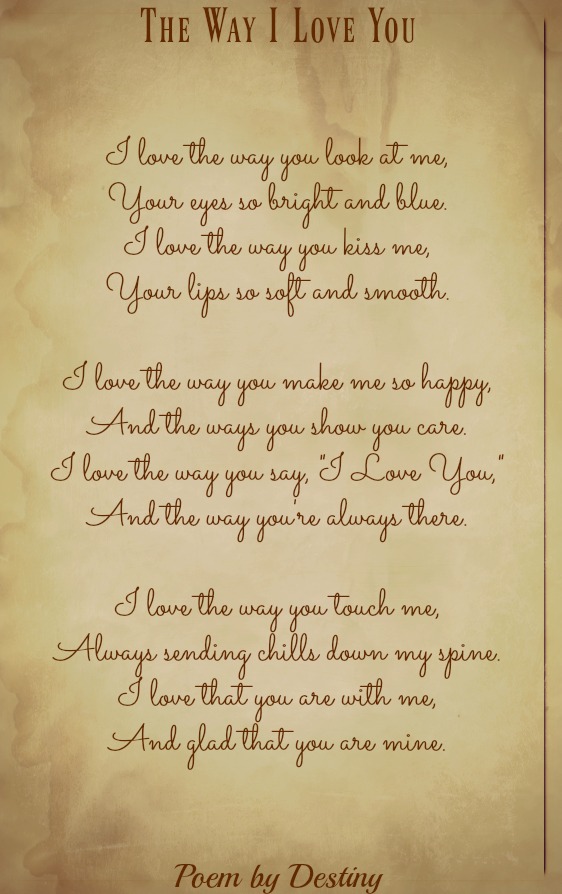 The Way I Love You
I love the way you look at me,
Your eyes so bright and blue.
I love the way you kiss me,
Your lips so soft and smooth.
I love the way you make me so happy,
And the ways you show you care.
I love the way you say, "I Love You,"
And the way you're always there.
I love the way you touch me,
Always sending chills down my spine.
I love that you are with me,
And glad that you are mine.
Poem by Destiny